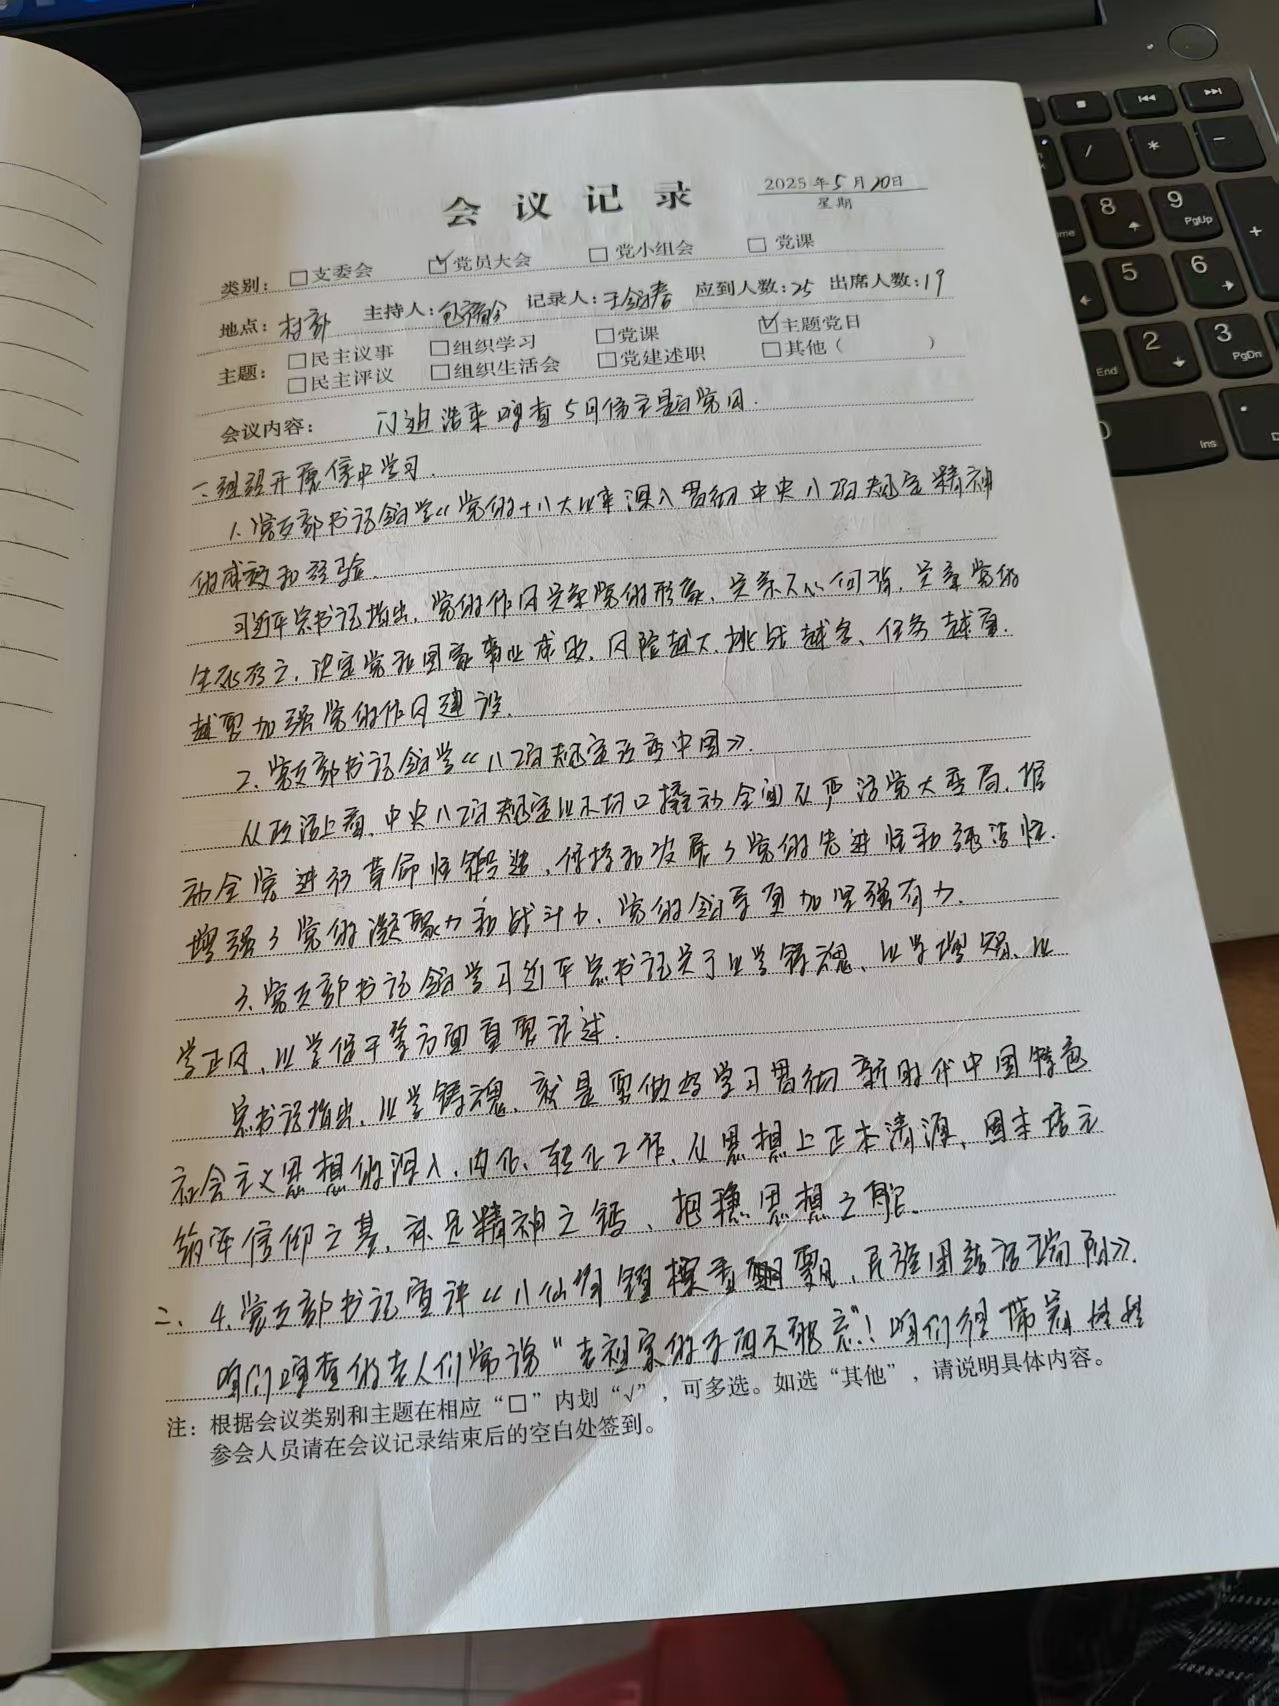 会议记录
2025年5月20日
星期
类别：□支委会 ☑党员大会 □党小组会 □党课
地点：村部 主持人： 记录人： 应到人数：25 出席人数：19
主题：□民主议事 □组织学习 □党课 ☑主题党日
□民主评议 □组织生活会 □党建述职 □其他（ ）
会议内容： 5月份主题党日.
一、组织开展集中学习.
1.党支部书记领学《党的十八大以来深入贯彻中央八项规定精神
的成效和经验.
习近平总书记指出，党的作风关系党的形象，关系人心向背，关系党的
生死存亡，决定党和国家事业成败，风险越大、挑战越多、任务越重，
越要加强党的作风建设.
2.党支部书记领学《八项规定改变中国》.
从政治上看，中央八项规定以小切口撬动全面从严治党大变局，推
动全党进行革命性锻造，保持和发展了党的先进性和纯洁性.
增强了党的凝聚力和战斗力、党的领导更加坚强有力.
3.党支部书记领学习近平总书记关于以学铸魂、以学增智、以
学正风、以学促干等方面重要论述.
总书记指出，以学铸魂，就是要做好学习贯彻新时代中国特色
社会主义思想的深入、内化、转化工作，从思想上正本清源、固本培元
筑牢信仰之基，补足精神之钙、把稳思想之舵.
二、4.党支部书记宣讲《八仙 香飘飘，民族团结话端阳》.
咱们 查的老人们常说“老祖宗的东西不能忘”！咱们
注：根据会议类别和主题在相应“□”内划“√”，可多选。如选“其他”，请说明具体内容。
参会人员请在会议记录结束后的空白处签到。
8
9
PgUp
5
6
End
2
3
PgDn
0
Ins